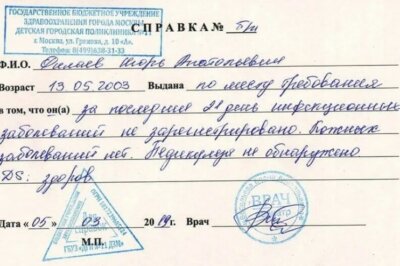 ГОСУДАРСТВЕННОЕ БЮДЖЕТНОЕ УЧРЕЖДЕНИЕ
ЗДРАВООХРАНЕНИЯ ГОРОДА МОСКВЫ
ДЕТСКАЯ ГОРОДСКАЯ ПОЛИКЛИНИКА
г. Москва, ул. д. 10 «А».
Телефон: 8(499)638-31-33
СПРАВКА № б/н
Ф.И.О. Игорь Анатольевич
Возраст 13.05.2003 Выдана по месту требования
в том, что он(а) за последние 21 день инфекционных
заболеваний не зарегистрировано. Кожных
заболеваний нет. Педикулеза не обнаружено
DS: здоров
Дата «05» 03 2019г. Врач
М.П.
Для
справок
ВРАЧ